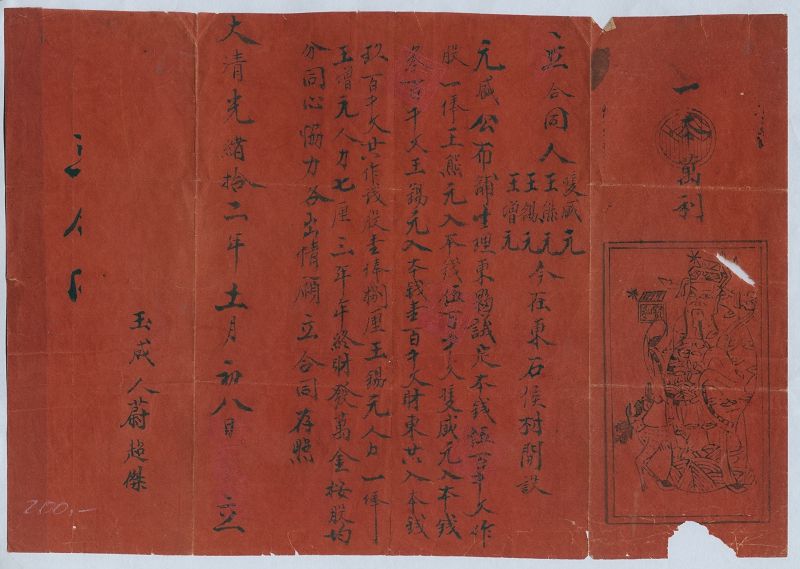 一本萬利
立合同人雙盛元王熊元王錫元王增元今在東石侯村開設
元盛公布舖生理東夥議定本錢伍百千文作
股一俸王熊元入本錢伍百千文雙盛元入本錢
叁百千文王錫元入本錢壹百千文財東共入本錢
玖百千文共作錢股壹俸捌厘王錫元人力一俸
王增元人力七厘三年年終財發萬金按股均
分同心協力各出情願立合同存照
大清光緒拾二年十一月初八日 立
人
玉成人蔚趙傑
200,-